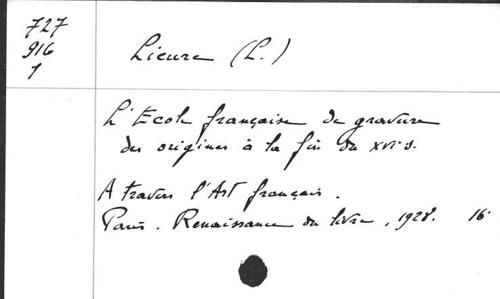 727
916
1
Lieure (L.)
L'Ecole française de gravure
des origines à la fin du XVIe s.
A travers l'Art français.
Paris. Renaissance du livre, 1928. 16°